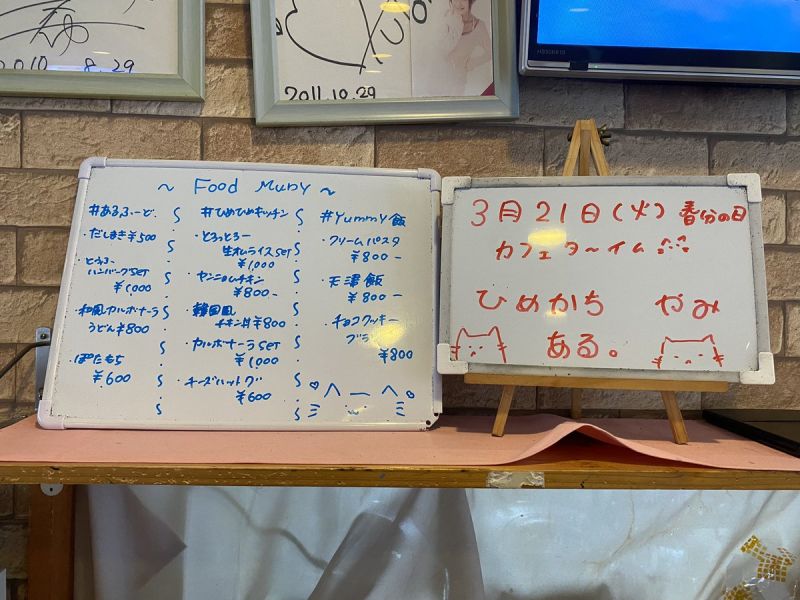 2010 8.29
2011.10.29
~ Food Muny ~
#あるふーど。
・だしまき ¥500
・とろとろー
ハンバーグSET
¥1,000
・和風カルボナーラ
うどん ¥800
・ぽたもち
¥600
#ひめひめキッチン
・とろっとろー
生オムライスSET
¥1,000
・ヤンニョムチキン
¥800-
・韓国風
チキン丼 ¥800
・カルボナーラSET
¥1,000
・チーズハットグ
¥600
#Yummy飯
・クリームパスタ
¥800-
・天津飯
¥800-
・チョコクッキー
¥800
3月21日(火) 春分の日
カフェタ〜イム
ひめかち やみ
ある。